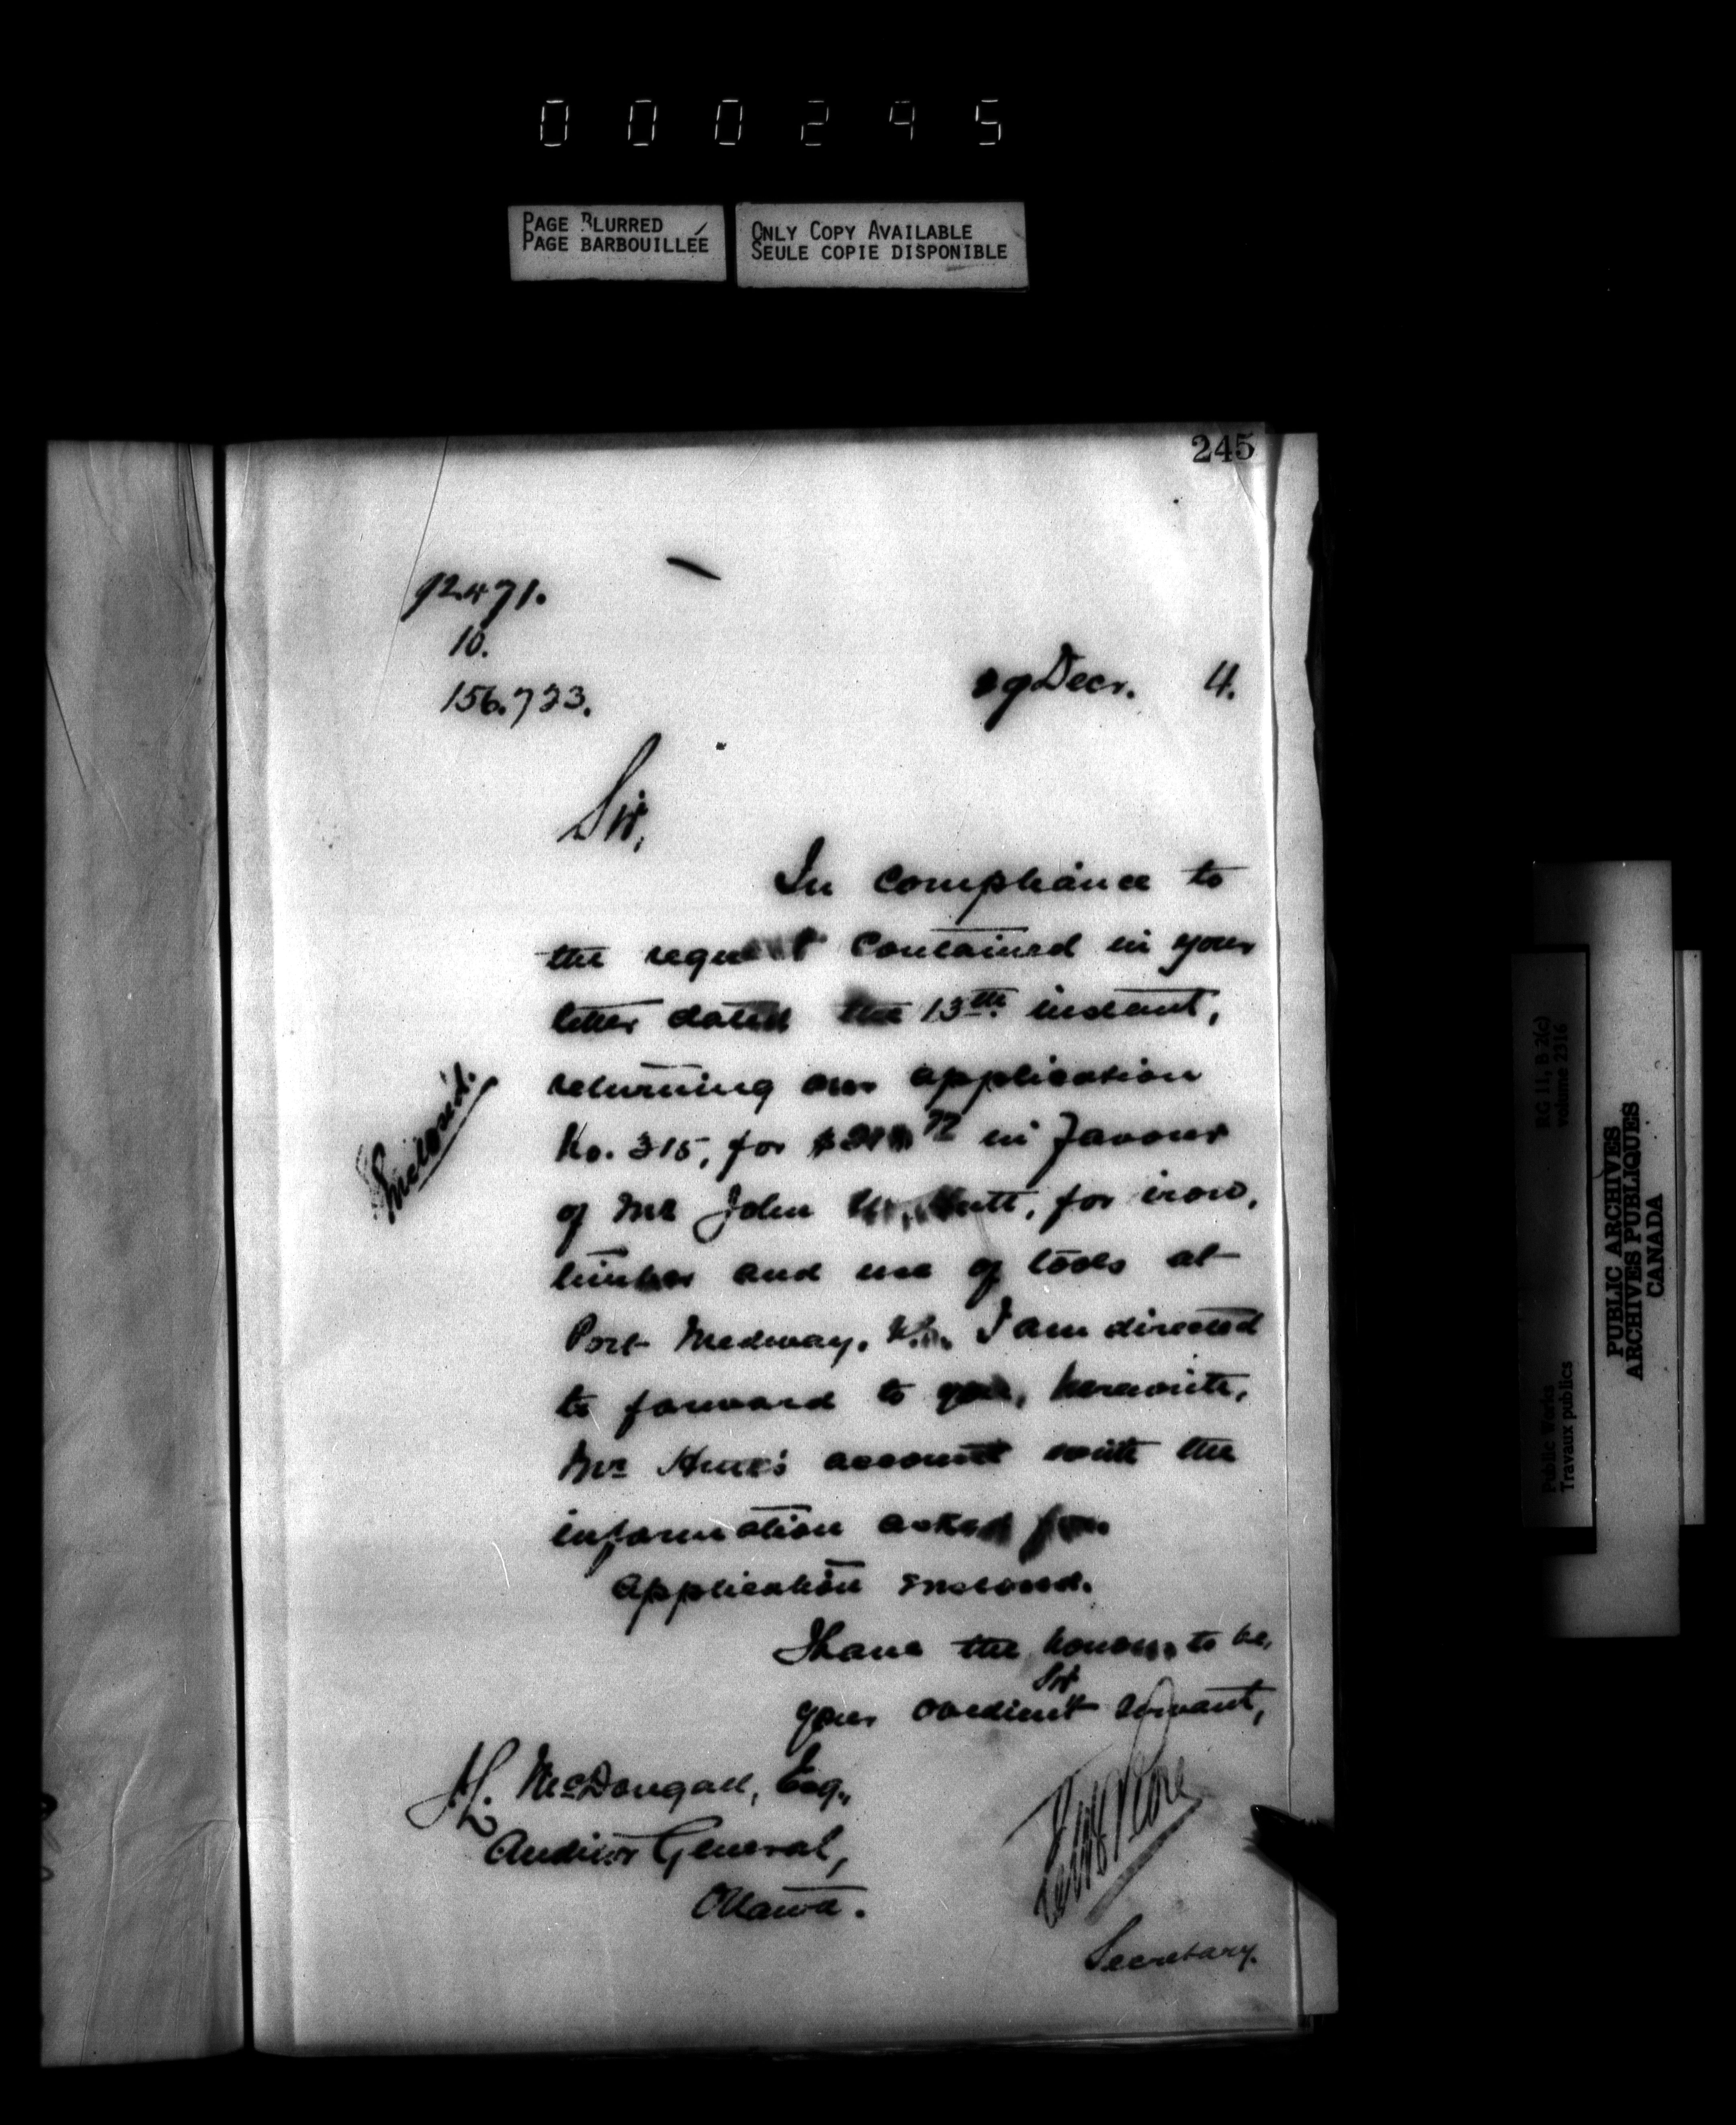 000295
PAGE BLURRED
PAGE BARBOUILLÉE
ONLY COPY AVAILABLE
SEULE COPIE DISPONIBLE
245
92.471.
10.
156.723.
29 Decr. 4.
Sir,
In compliance to
the request contained in your
letter dated the 13th. instant,
returning our application
No. 315, for in favour
of Mr John Hutt, for iron,
timber and use of tools at
Port Medway, N.S. I am directed
to forward to you, herewith,
Mr Hutt's account with the
information asked for.
Application enclosed.
Enclosed.
I have the honour to be,
Sir
your obedient servant,
J.L. McDougall, Esq.,
Auditor General,
Ottawa.
Secretary.
RG 11, B 2(c)
volume 2316
Public Works
Travaux publics
PUBLIC ARCHIVES
ARCHIVES PUBLIQUES
CANADA